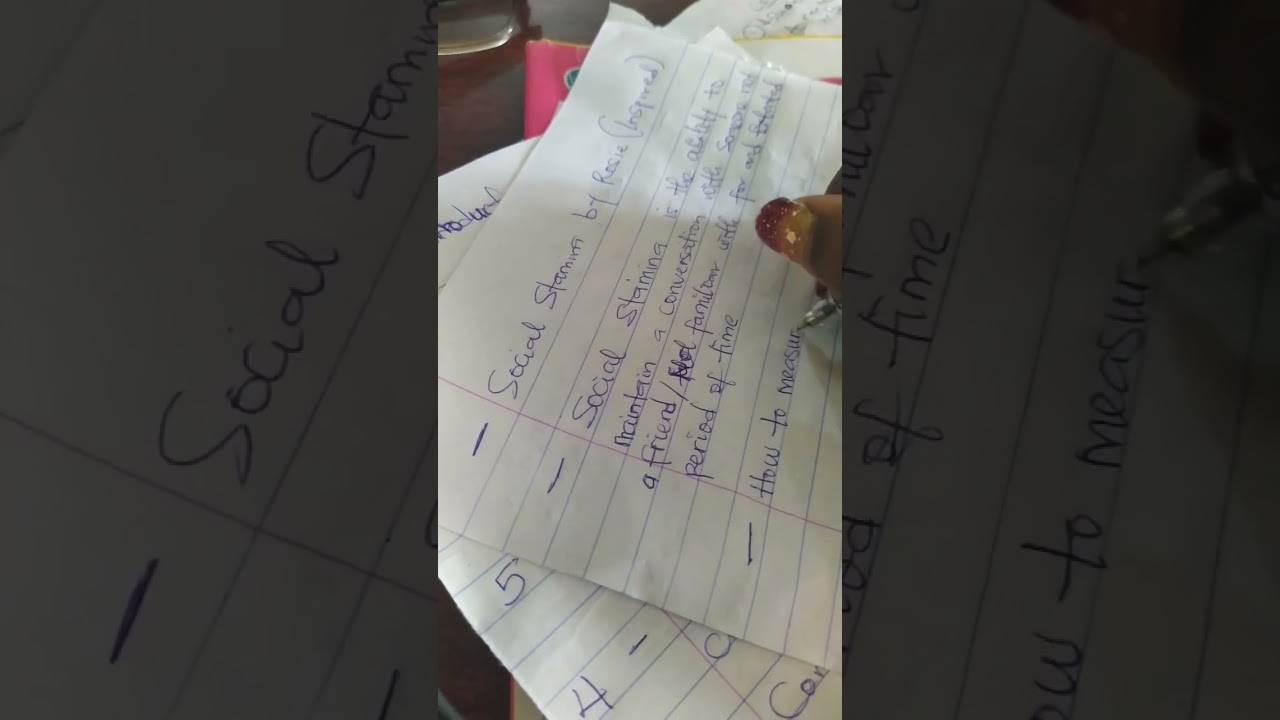 - Social Stamina by Rosie (Inspired)
- Social Stamina is the ability to
maintain a conversation with someone not
a friend / familiar with for and extended
period of time
- How to measur
5
4 -